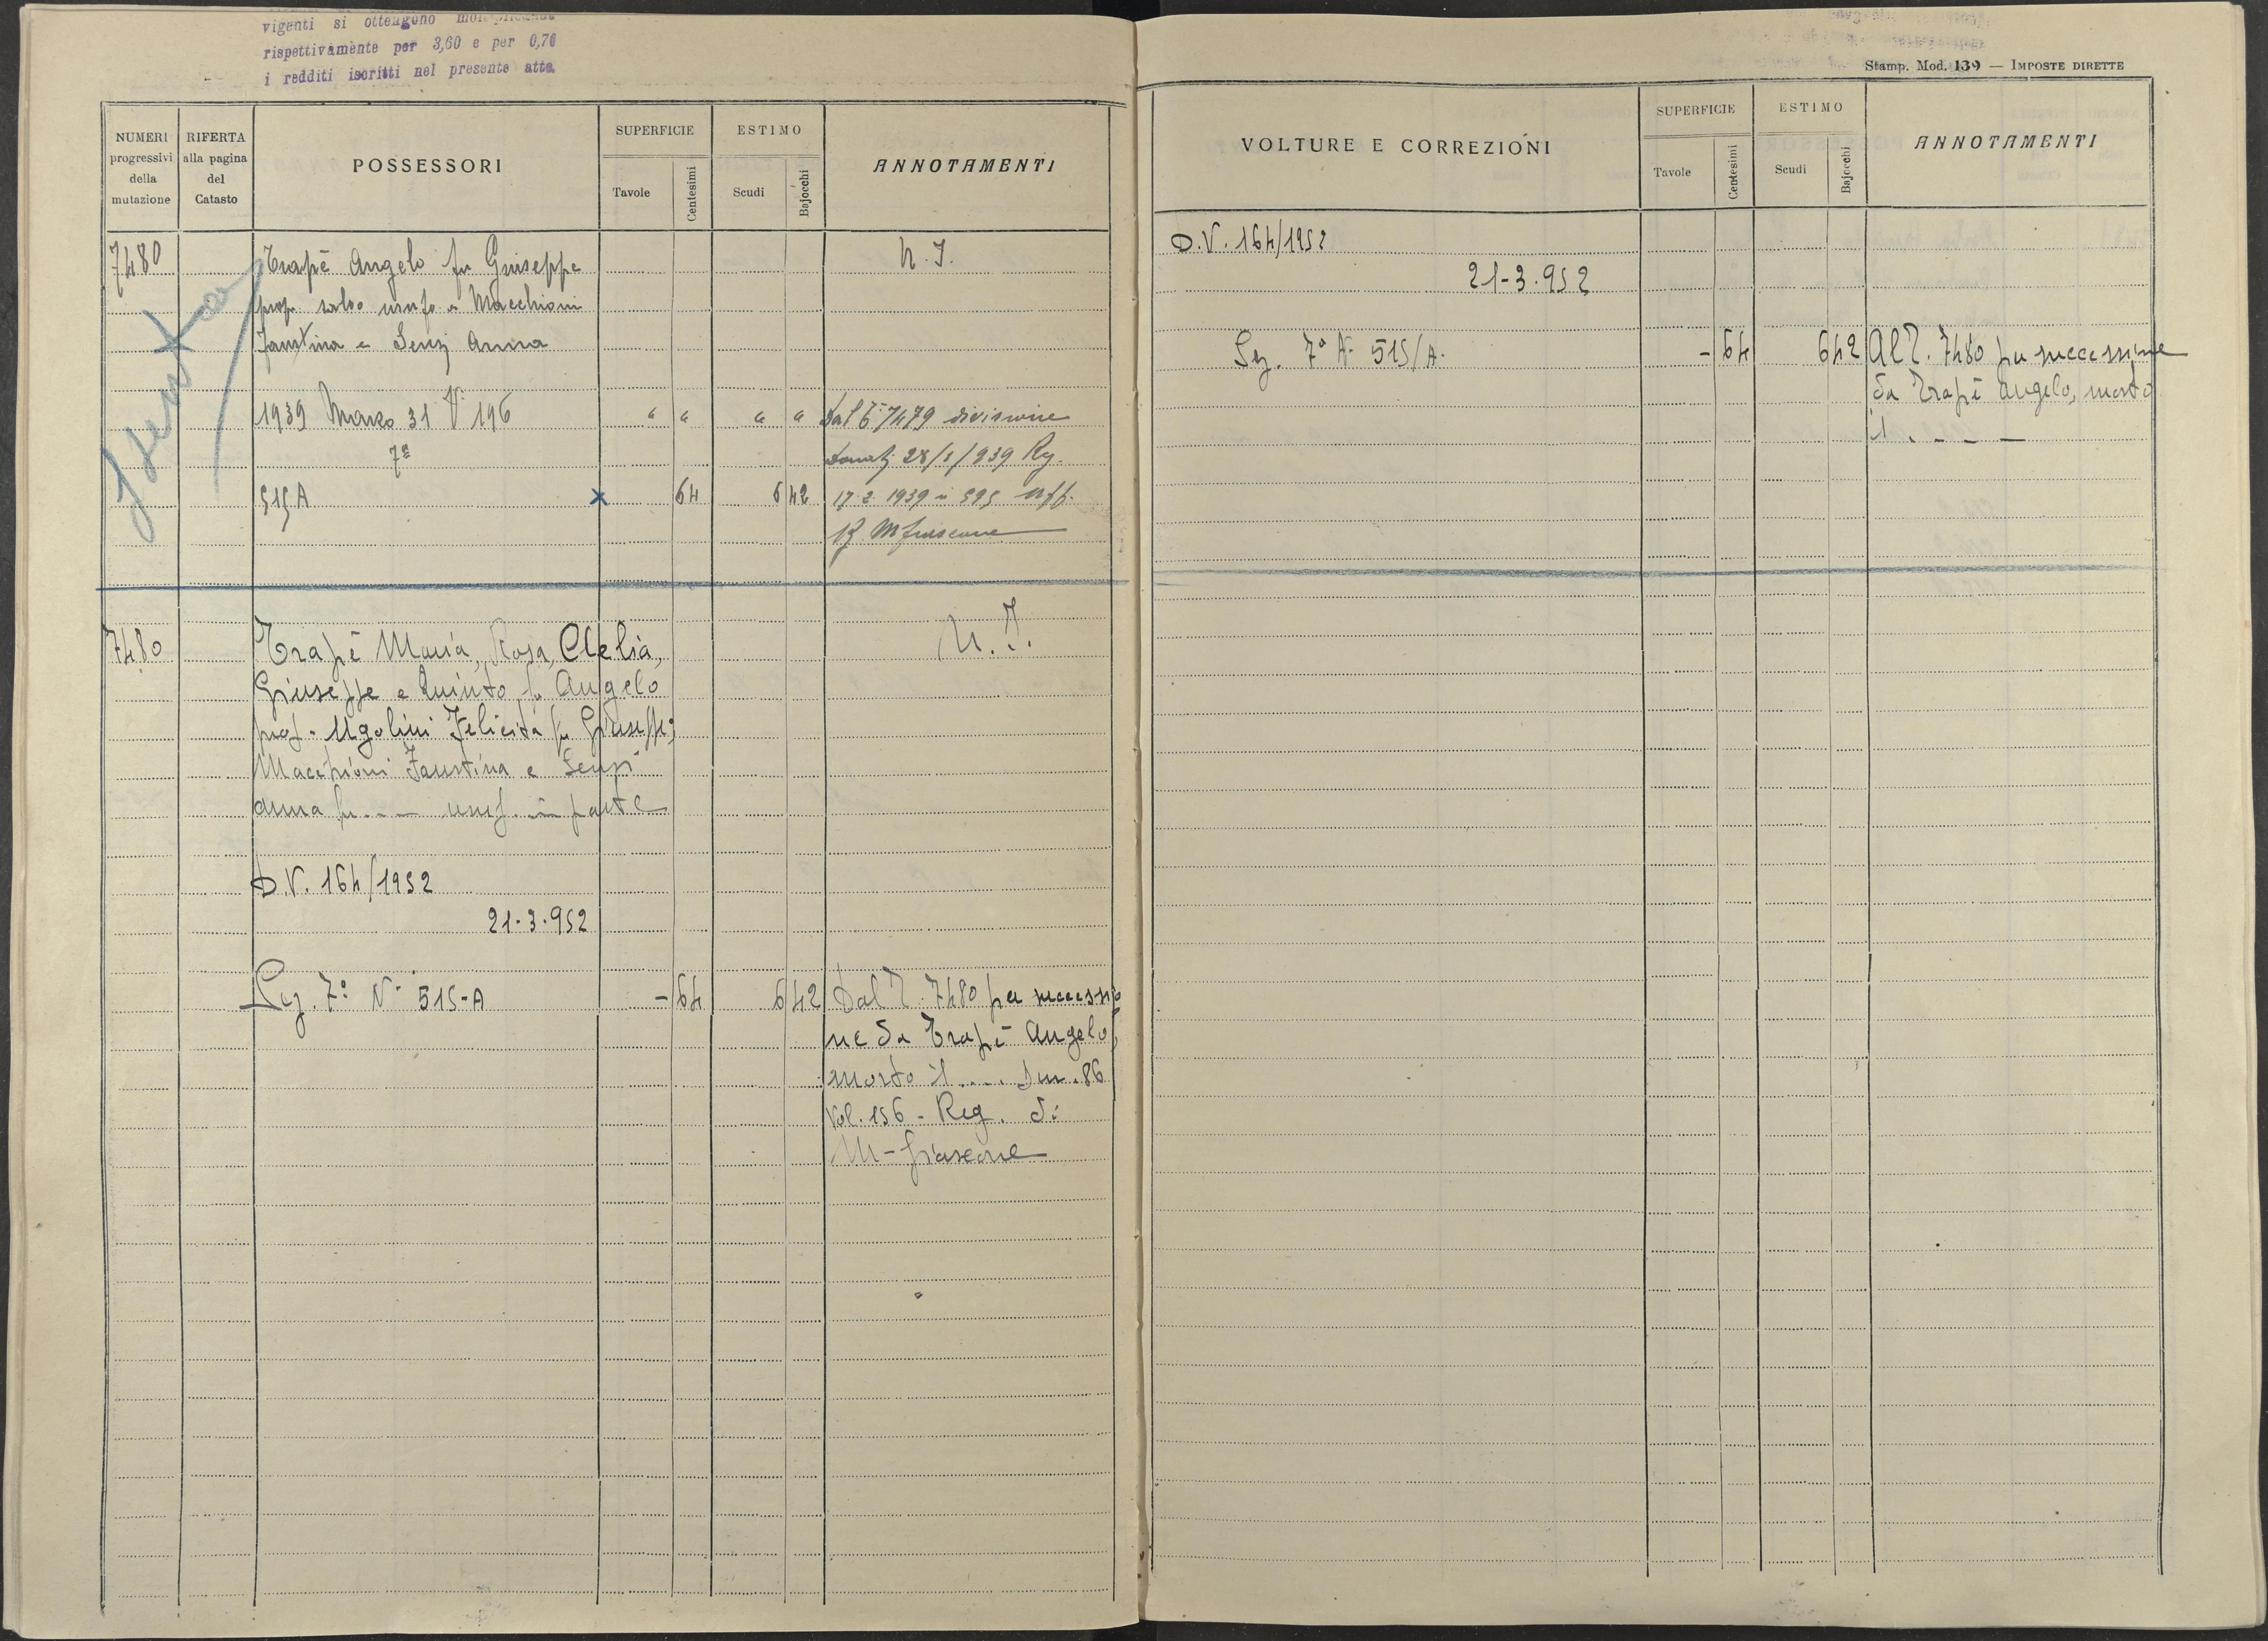 vigenti si ottengono moltiplicando
rispettivamente per 3,60 e per 0,70
i redditi iscritti nel presente atto.
NUMERI progressivi della mutazione
RIFERTA alla pagina del Catasto
POSSESSORI
SUPERFICIE
Tavole
Centesimi
ESTIMO
Scudi
Bajocchi
ANNOTAMENTI
7480
Trapè Angelo fu Giuseppe
N. I.
prop. salvo usufo a Macchioni
Faustina e Senzi Anna
1939 Marzo 31 V. 196 " " " " Dal T. 7479 divisione
7a
28/1/939 Rg.
515 A x 64 6 42 17 2 1939 n 595 uff.
Rg Mfiascone
7480
Trapè Maria, Rosa, Clelia,
N. I.
Giuseppe e Quinto fu Angelo
prop. Ugolini Felicita fu Giuseppe;
Macchioni Faustina e Senzi
Anna fu - - - usuf. in parte
D.V. 164/1952
21-3-952
Sez. 7a N. 515-A - 64 6 42 Dal T. 7480 per successio
ne da Trapè Angelo,
morto il .... Den. 86
Vol. 156 - Reg. di
M-fiascone
Stamp. Mod. 139 — IMPOSTE DIRETTE
VOLTURE E CORREZIONI
SUPERFICIE
Tavole
Centesimi
ESTIMO
Scudi
Bajocchi
ANNOTAMENTI
D.V. 164/1952
21-3-952
Sez. 7a N. 515/A. - 64 6 42 Al T. 7480 per successione
da Trapè Angelo, morto
il . - - -